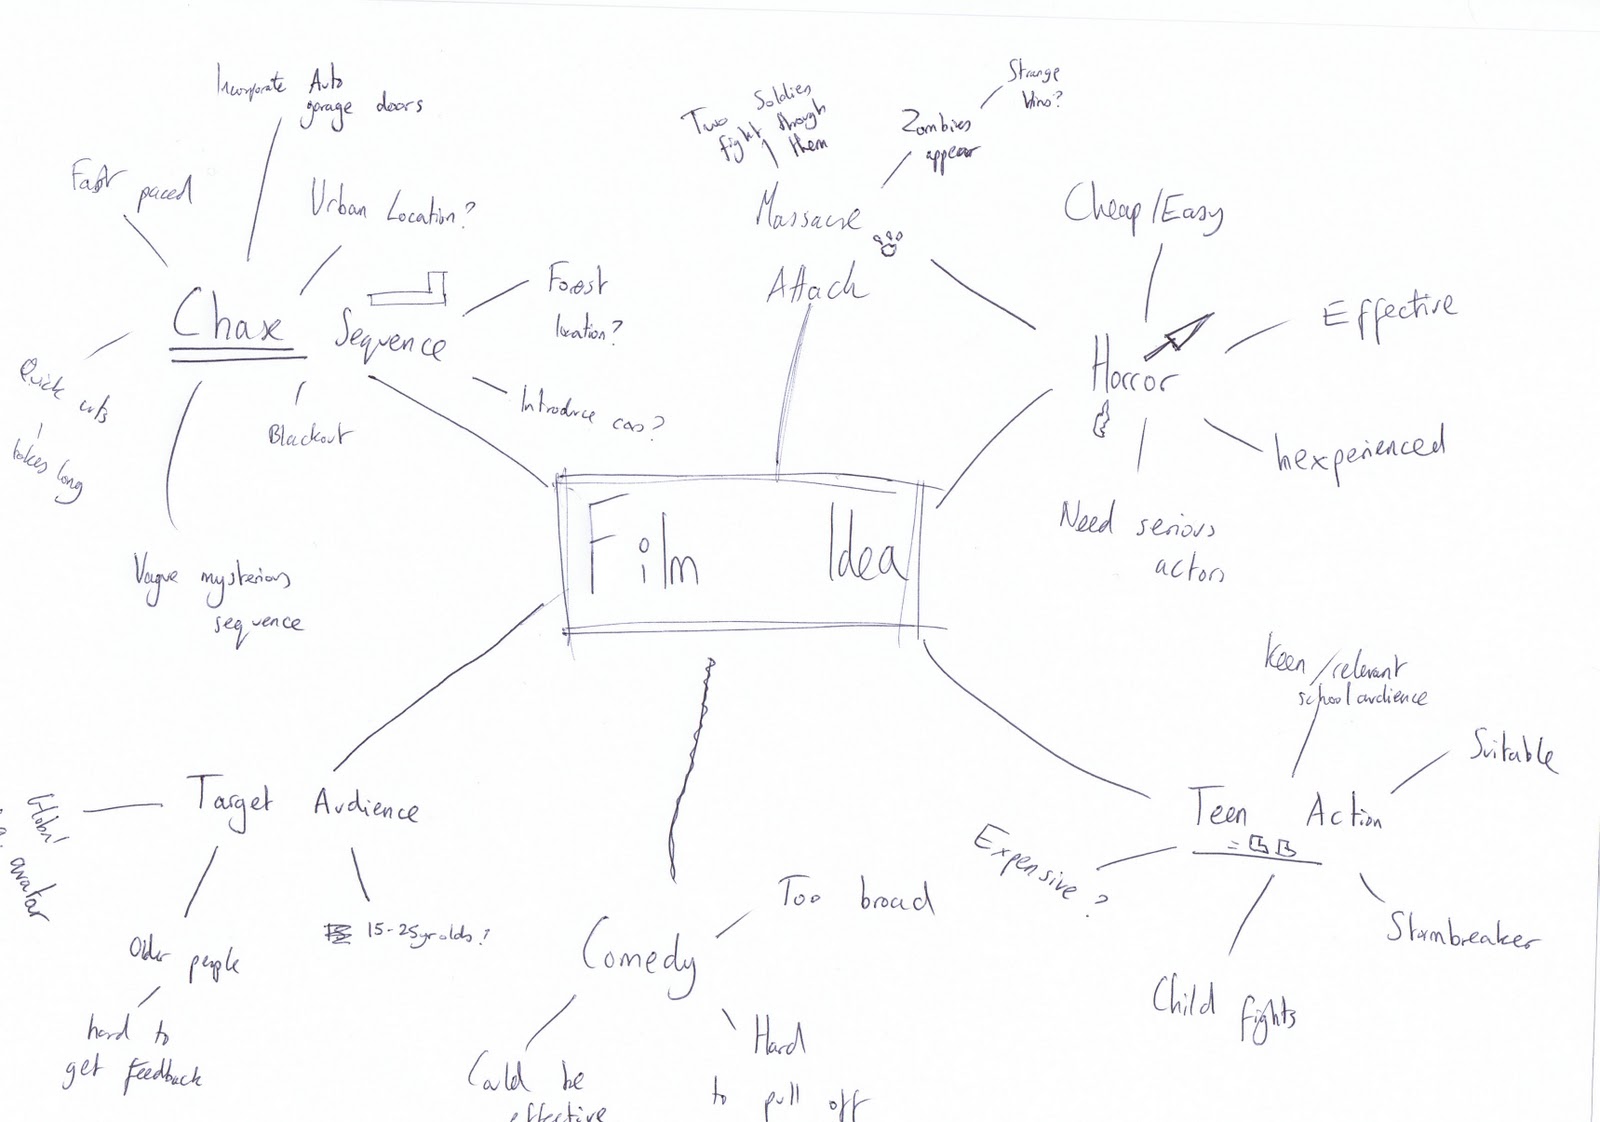 Incorporate Auto
garage doors
Fast paced
Urban Location?
Chase Sequence
Forest
location?
Introduce cars?
Quick cuts
takes long
Blackout
Vague mysterious
sequence
Two Soldiers
fight through
them
Zombies
appear
Strange
Massacre
Attack
Cheap/Easy
Effective
Horror
Inexperienced
Need serious
actors
Film Idea
Keen/relevant
school audience
Suitable
Teen Action
Expensive?
Stormbreaker
Child fights
Target Audience
Global
avatar
Older people
hard to
get feedback
15-25yr olds?
Comedy
Too broad
Hard
to pull off
Could be
effective